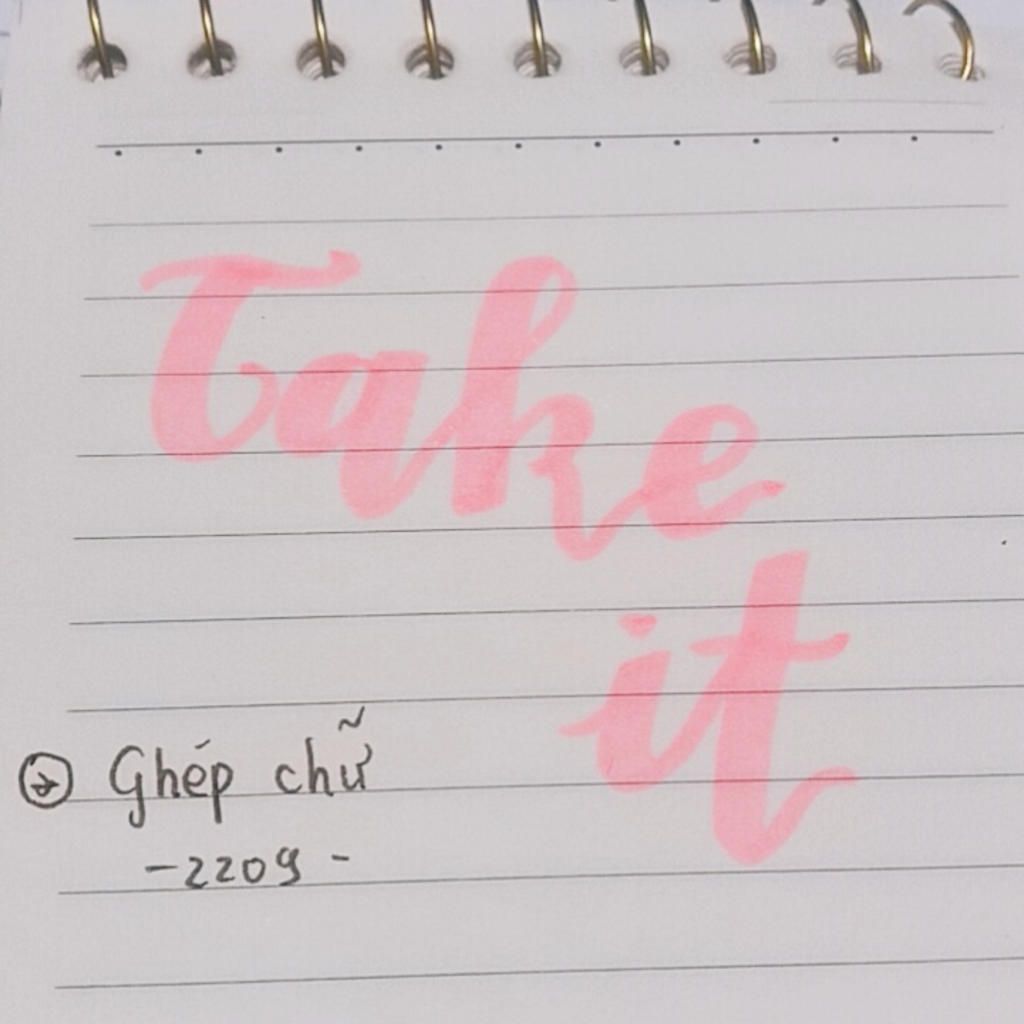 Take
it
Ghép chữ
-2209-